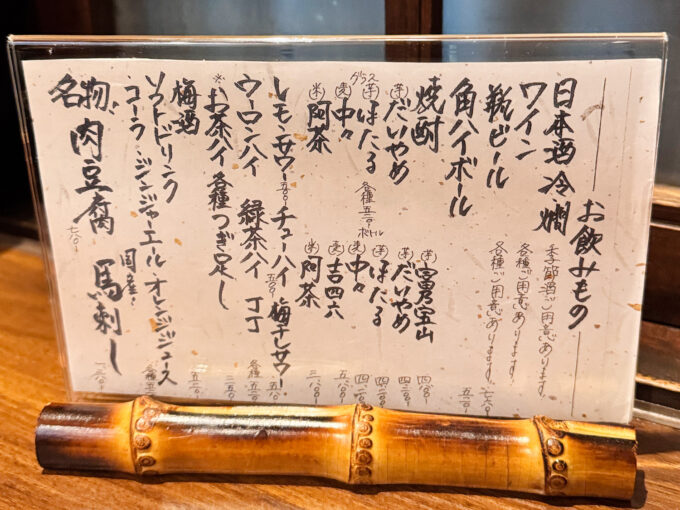 お飲みもの
日本酒 冷 燗 季節酒ご用意あります
ワイン 各種ご用意あります!
瓶ビール 各種ご用意あります! 七八〇-
角ハイボール 五五〇-
焼酎
グラス
(芋)だいやめ
(芋)ほたる
(麦)中々
(米)阿茶
各種五五〇-
ボトル
(芋)富乃宝山 四八〇〇-
(芋)だいやめ
(芋)ほたる
(麦)中々
(麦)吉四六
(米)阿茶
レモンサワー 五五〇- チューハイ 梅干しサワー
ウーロンハイ 緑茶ハイ
※お茶ハイ各種つぎ足し
梅酒 五五〇-
ソフトドリンク
コーラ・ジンジャーエール・オレンジジュース
名物、肉豆腐 七八〇-
国産! 馬刺し